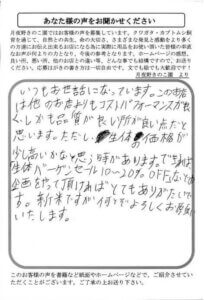 あなた様の声をお聞かせください
月夜野きのこ園ではお客様の声を募集しています。クワガタ・カブトムシ飼
育を通じて、自然との共生、命の大切さ、さまざまな発見と感動をより多く
の方達にお伝え出来るお店になる為に実際に用品をお使い頂いた皆様の率直
なお声やお叱りの声をもとに、今後の参考となります。ホームページの感想、
良い所、悪い所、他のお店との違い等、どんな事でも結構ですので、お送りく
ださい。応募はがきの書き方は一切自由です。文でも絵でも大歓迎です。
月夜野きのこ園 より
いつもお世話になっています。このお店
は他のお店よりもコストパフォーマンスが良
く、しかも品質が良い所が良い点だと
思います。ただ、生体の価格が
少し高いかなと思う時があります。できれば
生体バーゲンセール10〜20% OFFなどの
企画をやって頂ければとてもありがたいで
す。新米ですが何とぞよろしくお願い
いたします。
このお客様の声を書籍など紙面やホームページなどで、ご紹介させてい
ただくことがございます。ご了承の上お送り下さい。